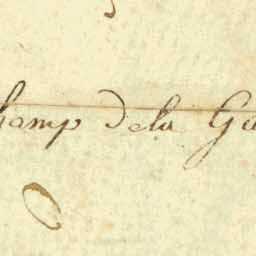 hamp de la Ga